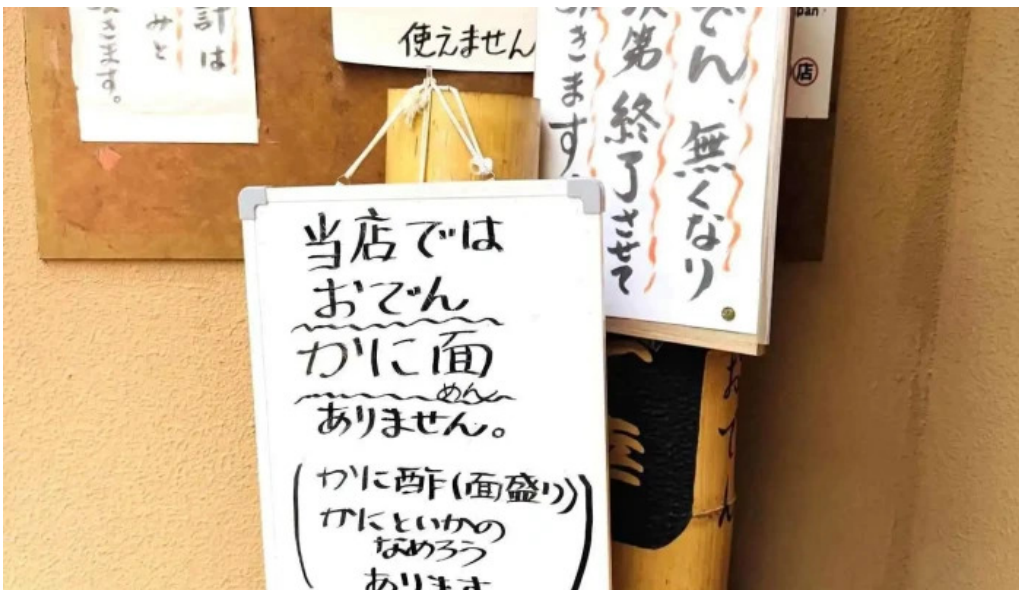 計は
みと
きます。
使えません
でん、無くなり
次第 終了させて
きます。
店
当店では
おでん
かに面
めん
ありません。
(かに酢(面盛り)
かにといかの
なめろう
あります)
おでん